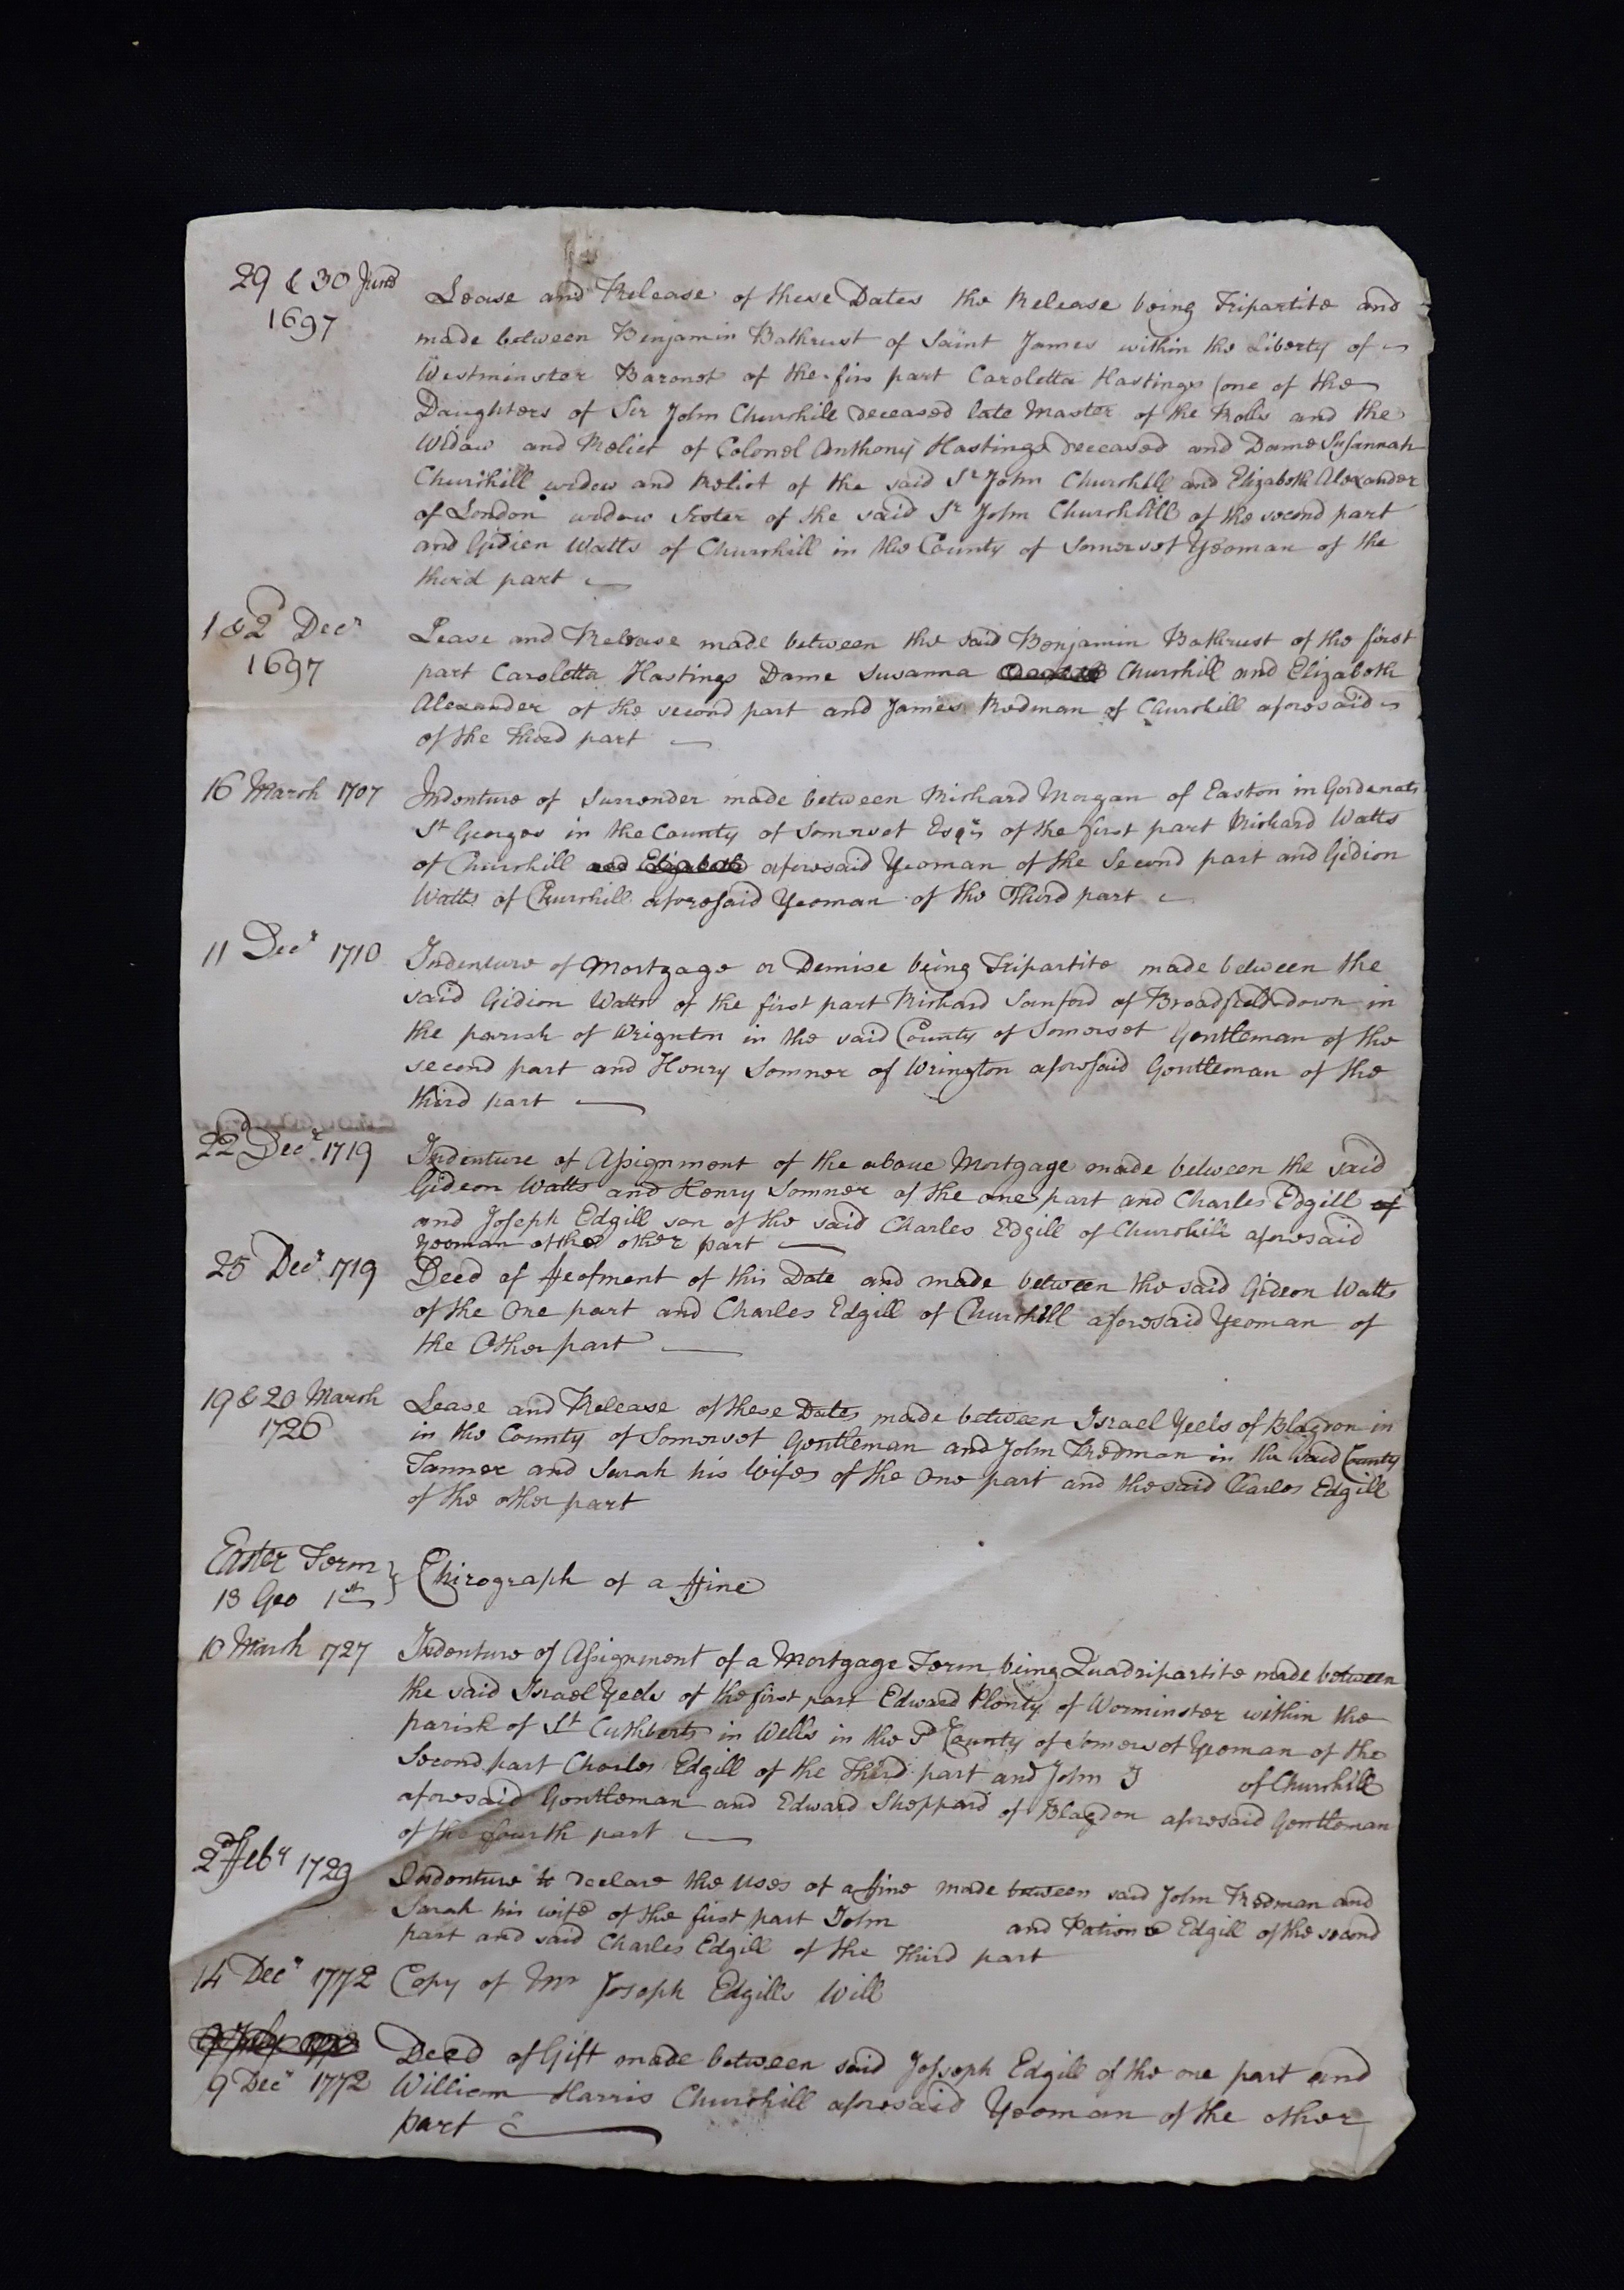 29 & 30 June
1697
Lease and Release of these Dates the Release being Tripartite and
made between Benjamin Bathrust of Saint James within the Liberty of
Westminster Baronet of the firs part Caroletta Hastings (one of the
Daughters of Sir John Churchill deceased late Master of the Rolls and the
Widaw and Relict of Colonel Anthony Hastings deceased and Dame Susannah
Churchill widow and Relict of the said Sr John Churchill and Elizabeth Alexander
of London widow Sister of the said Sr John Churchill of the second part
and Gidien Watts of Churchill in the County of Somerset Yeoman of the
third part
1 & 2d Decr
1697
Lease and Release made between the said Benjamin Bathrust of the first
part Caroletta Hastings Dame Susanna Churchill and Elizabeth
Alexander of the second part and James Redman of Churchill aforesaid
of the third part
16 March 1707
Indenture of Surrender made between Richard Morgan of Easton in Gordenats
St Georges in the County of Somerset Esqr of the first part Richard Watts
of Churchill and Elizabeth aforesaid Yeoman of the Second part and Gidion
Watts of Churchill aforesaid Yeoman of the Third part
11 Decr 1710
Indenture of Mortgage or Demise being Tripartite made between the
said Gidion Watts of the first part Richard Sanford of Broadfield down in
the parish of Wrignton in the said County of Somerset Gentleman of the
second part and Henry Somner of Wrington aforesaid Gentleman of the
third part
22d Decr 1719
Indenture of Assignment of the above Mortgage made between the said
Gideon Watts and Henry Somner of the one part and Charles Edgill of
and Joseph Edgill son of the said Charles Edgill of Churchill aforesaid
Yeoman of the other part
25 Decr 1719
Deed of ffeofment of this Date and made between the said Gideon Watts
of the One part and Charles Edgill of Churchill aforesaid Yeoman of
the Other part
19 & 20 March
1726
Lease and Release of these Dates made between Israel Yeels of Blagdon in
in the County of Somerset Gentleman and John Tredman in the said County
Tanner and Sarah his Wife of the One part and the said Charles Edgill
of the other part
Easter Term
13 Geo 1st
Chirograph of a ffine
10 March 1727
Indenture of Assignment of a Mortgage Term being Quadripartite made between
the said Israel Yeels of the first part Edward Plenty of Worminster within the
parish of St Cuthberts in Wells in the sd County of Somerset Yeoman of the
Second part Charles Edgill of the Third part and John T of Churchill
aforesaid Gentleman and Edward Sheppard of Blagdon aforesaid Gentleman
of the fourth part
2d ffeby 1729
Indenture to declare the Uses of a ffine made between said John Tredman and
Sarah his wife of the first part John and Patience Edgill of the second
part and said Charles Edgill of the Third part
14 Decr 1772
Copy of Mr Joseph Edgills Will
9 Decr 1772
Deed of Gift made between said Josseph Edgill of the one part and
William Harris Churchill aforesaid Yeoman of the other
part